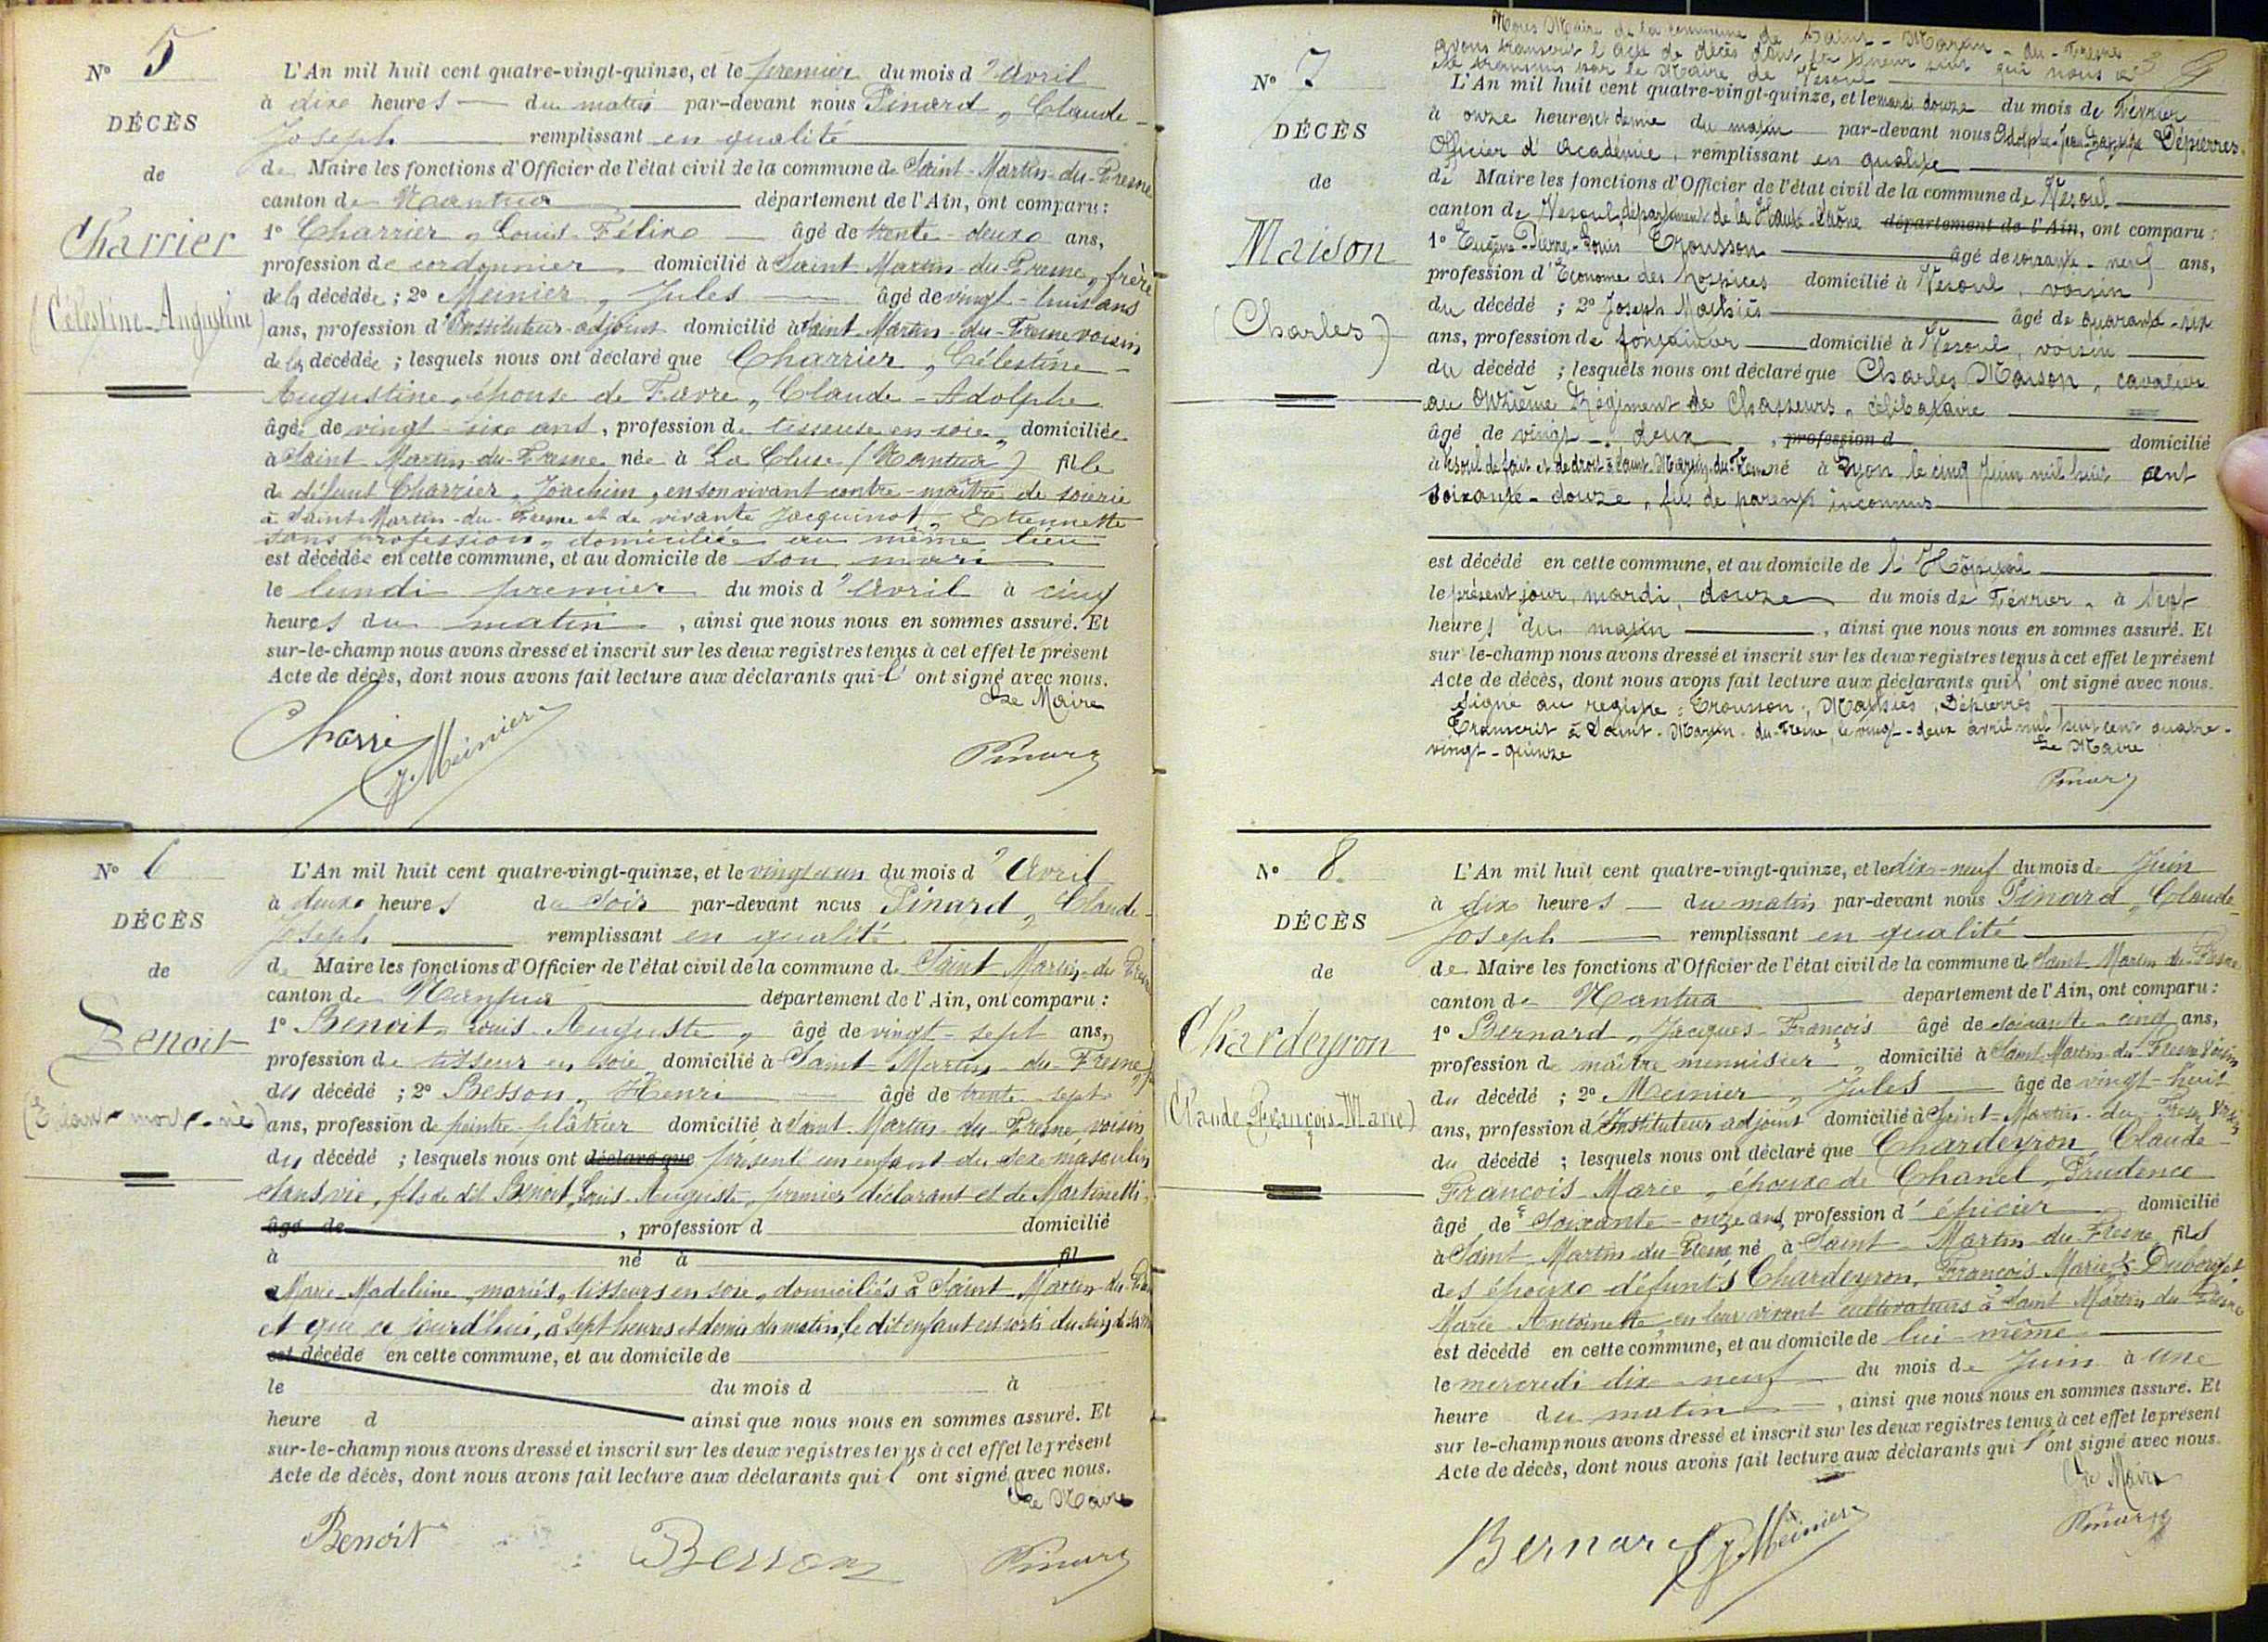 N° 5
DÉCÈS
de
Charrier
(Célestine-Augustine)
L'An mil huit cent quatre-vingt-quinze, et le premier du mois d'Avril
à dix heures du matin par-devant nous Pinard, Claude-
Joseph remplissant en qualité
de Maire les fonctions d'Officier de l'état civil de la commune de Saint-Martin-du-Fresne
canton de Nantua département de l'Ain, ont comparu:
1° Charrier, Louis-Félix âgé de trente-deux ans,
profession de cordonnier domicilié à Saint Martin-du-Fresne, frère
de la décédée; 2° Meinier, Jules âgé de vingt-huit ans
ans, profession d'Instituteur-adjoint domicilié à Saint Martin-du-Fresne voisin
de la décédée; lesquels nous ont déclaré que Charrier, Célestine-
Augustine, épouse de Favre, Claude-Adolphe
âgée de vingt-six ans, profession de tisseuse en soie, domiciliée
à Saint Martin-du-Fresne née à La Cluse (Nantua) fille
de défunt Charrier, Joachim, en son vivant contre-maître de soierie
à Saint-Martin-du-Fresne et de vivante Jacquinot, Etiennette
sans profession, domiciliée au même lieu
est décédée en cette commune, et au domicile de son mari
le lundi premier du mois d'Avril à cinq
heures du matin, ainsi que nous nous en sommes assuré. Et
sur-le-champ nous avons dressé et inscrit sur les deux registres tenus à cet effet le présent
Acte de décès, dont nous avons fait lecture aux déclarants qui l'ont signé avec nous.
Le Maire
Charrier
J. Meinier
Pinard
N° 6
DÉCÈS
de
Benoit
(Enfant mort-né)
L'An mil huit cent quatre-vingt-quinze, et le vingt et un du mois d'Avril
à deux heures du soir par-devant nous Pinard, Claude-
Joseph remplissant en qualité
de Maire les fonctions d'Officier de l'état civil de la commune de Saint Martin-du-Fresne
canton de Nantua département de l'Ain, ont comparu:
1° Benoit, Louis-Auguste, âgé de vingt-sept ans,
profession de tisseur en soie, domicilié à Saint-Martin-du-Fresne,
du décédé; 2° Besson, Henri âgé de trente-sept
ans, profession de peintre-plâtrier domicilié à Saint Martin-du-Fresne, voisin
du décédé; lesquels nous ont déclaré que présenté un enfant du sexe masculin
sans vie, fils de dit Benoit, Louis-Auguste, premier déclarant et de Martinetti,
âgé de , profession d domicilié
à né à fil
Marie-Madeleine, mariés, tisseurs en soie, domiciliés à Saint-Martin-du-Fresne
et que ce jourd'hui, à sept heures et demie du matin, le dit enfant est sorti du sein de sa
est décédé en cette commune, et au domicile de
le du mois d à
heure d ainsi que nous nous en sommes assuré. Et
sur-le-champ nous avons dressé et inscrit sur les deux registres tenus à cet effet le présent
Acte de décès, dont nous avons fait lecture aux déclarants qui l'ont signé avec nous.
Le Maire
Benoit
Besson
Pinard
Nous Maire de la commune de Saint-Martin-du-Fresne
avons transcrit l'acte de décès dont la teneur suit qui nous a
été transmis par le Maire de Vesoul
N° 7
DÉCÈS
de
Maison
(Charles)
L'An mil huit cent quatre-vingt-quinze, et le mardi douze du mois de Février
à onze heures et demie du matin par-devant nous Adolphe-Jean-Baptiste Dépierres
Officier d'Académie, remplissant en qualité
de Maire les fonctions d'Officier de l'état civil de la commune de Vesoul
canton de Vesoul, département de la Haute-Saône département de l'Ain, ont comparu:
1° Eugène-Pierre-Louis Trousson âgé de soixante-neuf ans,
profession d'Econome des hospices domicilié à Vesoul, voisin
du décédé; 2° Joseph Mathiés âgé de quarante-six
ans, profession de fontainier domicilié à Vesoul, voisin
du décédé; lesquels nous ont déclaré que Charles Maison, cavalier
au onzième Régiment de Chasseurs, célibataire
âgé de vingt-deux, profession d domicilié
à Vesoul de fait et de droit à Saint-Martin-du-Fresne né à Lyon le cinq Juin mil huit cent
soixante-douze, fils de parents inconnus
est décédé en cette commune, et au domicile de l'Hôpital
le présent jour, mardi, douze du mois de Février, à sept
heures du matin, ainsi que nous nous en sommes assuré. Et
sur-le-champ nous avons dressé et inscrit sur les deux registres tenus à cet effet le présent
Acte de décès, dont nous avons fait lecture aux déclarants qui l'ont signé avec nous.
Signé au registre: Trousson, Mathiés, Dépierres
Transcrit à Saint-Martin-du-Fresne, le vingt-deux avril mil huit cent quatre-
vingt-quinze
Le Maire
Pinard
N° 8
DÉCÈS
de
Chardeyron
(Claude-François-Marie)
L'An mil huit cent quatre-vingt-quinze, et le dix-neuf du mois de Juin
à dix heures du matin par-devant nous Pinard, Claude-
Joseph remplissant en qualité
de Maire les fonctions d'Officier de l'état civil de la commune de Saint Martin-du-Fresne
canton de Nantua département de l'Ain, ont comparu:
1° Bernard, Jacques-François âgé de soixante-cinq ans,
profession de maître menuisier, domicilié à Saint-Martin-du-Fresne voisin
du décédé; 2° Meinier, Jules âgé de vingt-huit
ans, profession d'Instituteur adjoint domicilié à Saint-Martin-du-Fresne voisin
du décédé; lesquels nous ont déclaré que Chardeyron, Claude-
François-Marie, époux de Chanel, Prudence
âgé de soixante-onze ans, profession d'épicier, domicilié
à Saint Martin-du-Fresne né à Saint-Martin-du-Fresne fils
des époux défunts Chardeyron, François-Marie & Duberget
Marie-Antoinette, en leur vivant cultivateurs à Saint-Martin-du-Fresne
est décédé en cette commune, et au domicile de lui-même
le mercredi dix-neuf du mois de Juin à une
heure du matin, ainsi que nous nous en sommes assuré. Et
sur le-champ nous avons dressé et inscrit sur les deux registres tenus à cet effet le présent
Acte de décès, dont nous avons fait lecture aux déclarants qui l'ont signé avec nous.
Le Maire
Bernard
J. Meinier
Pinard